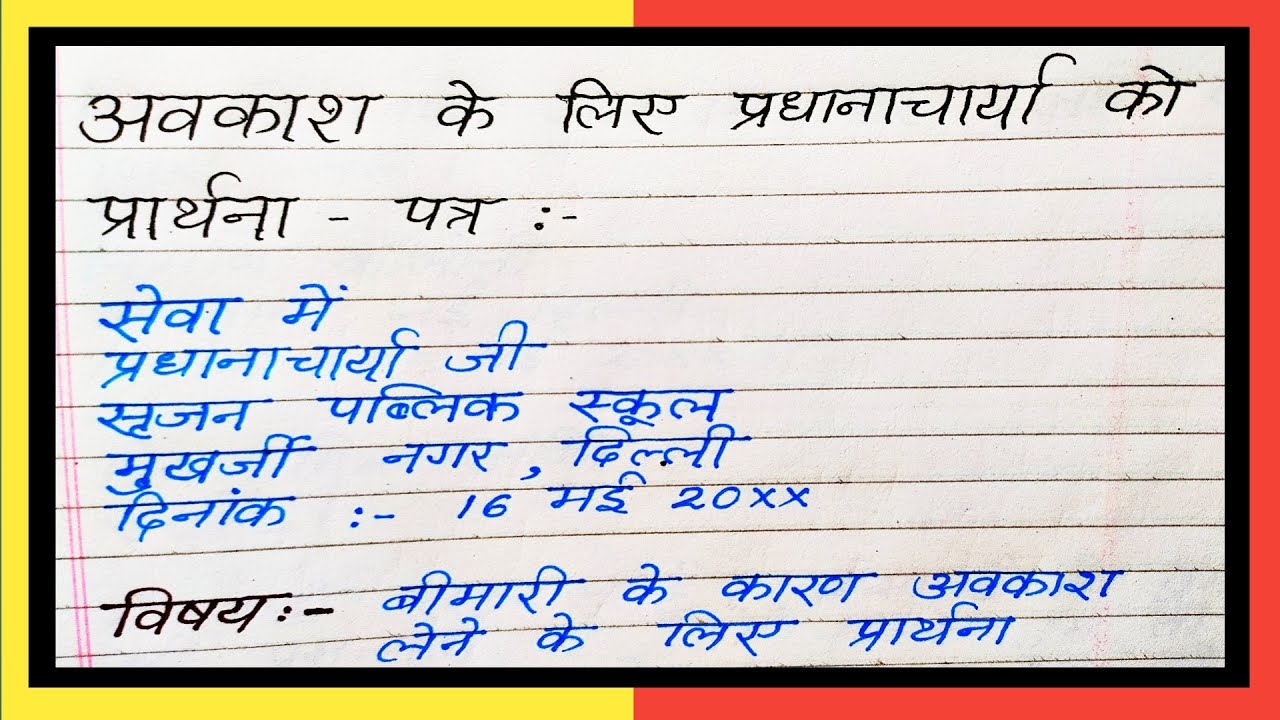 अवकाश के लिए प्रधानाचार्या को
प्रार्थना - पत्र :-
सेवा में
प्रधानाचार्या जी
सृजन पब्लिक स्कूल
मुखर्जी नगर, दिल्ली
दिनांक :- 16 मई 20xx
विषय:- बीमारी के कारण अवकाश
लेने के लिए प्रार्थना